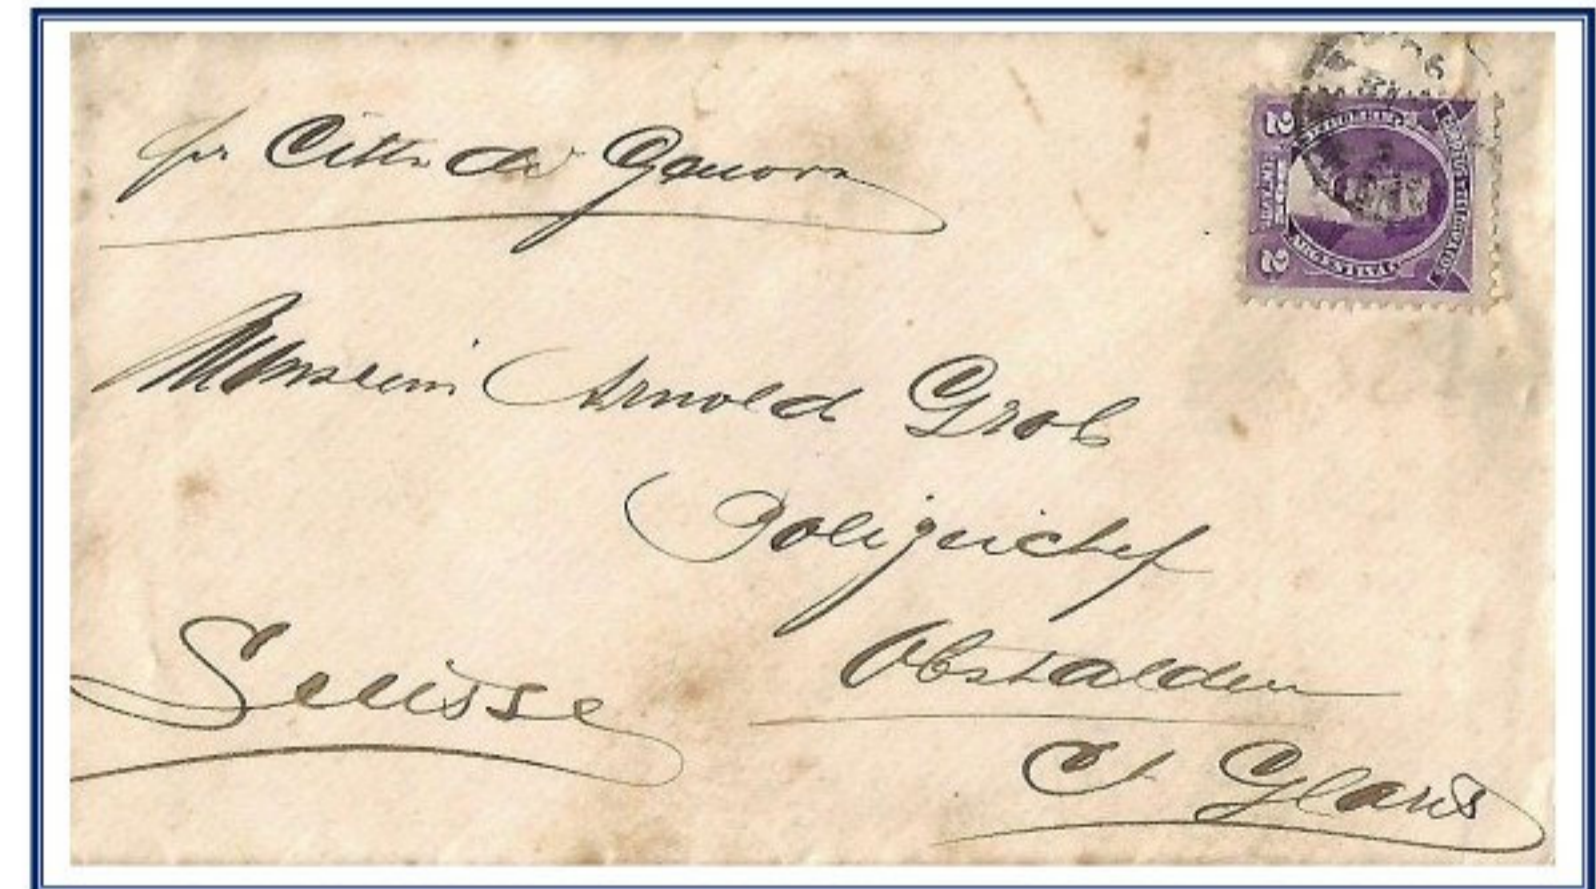 per Citta di Genova
Monsieur Arnold Grob
Polizeichef
Obstalden
Ct Glarus
Suisse
2
2
ARGENTINA